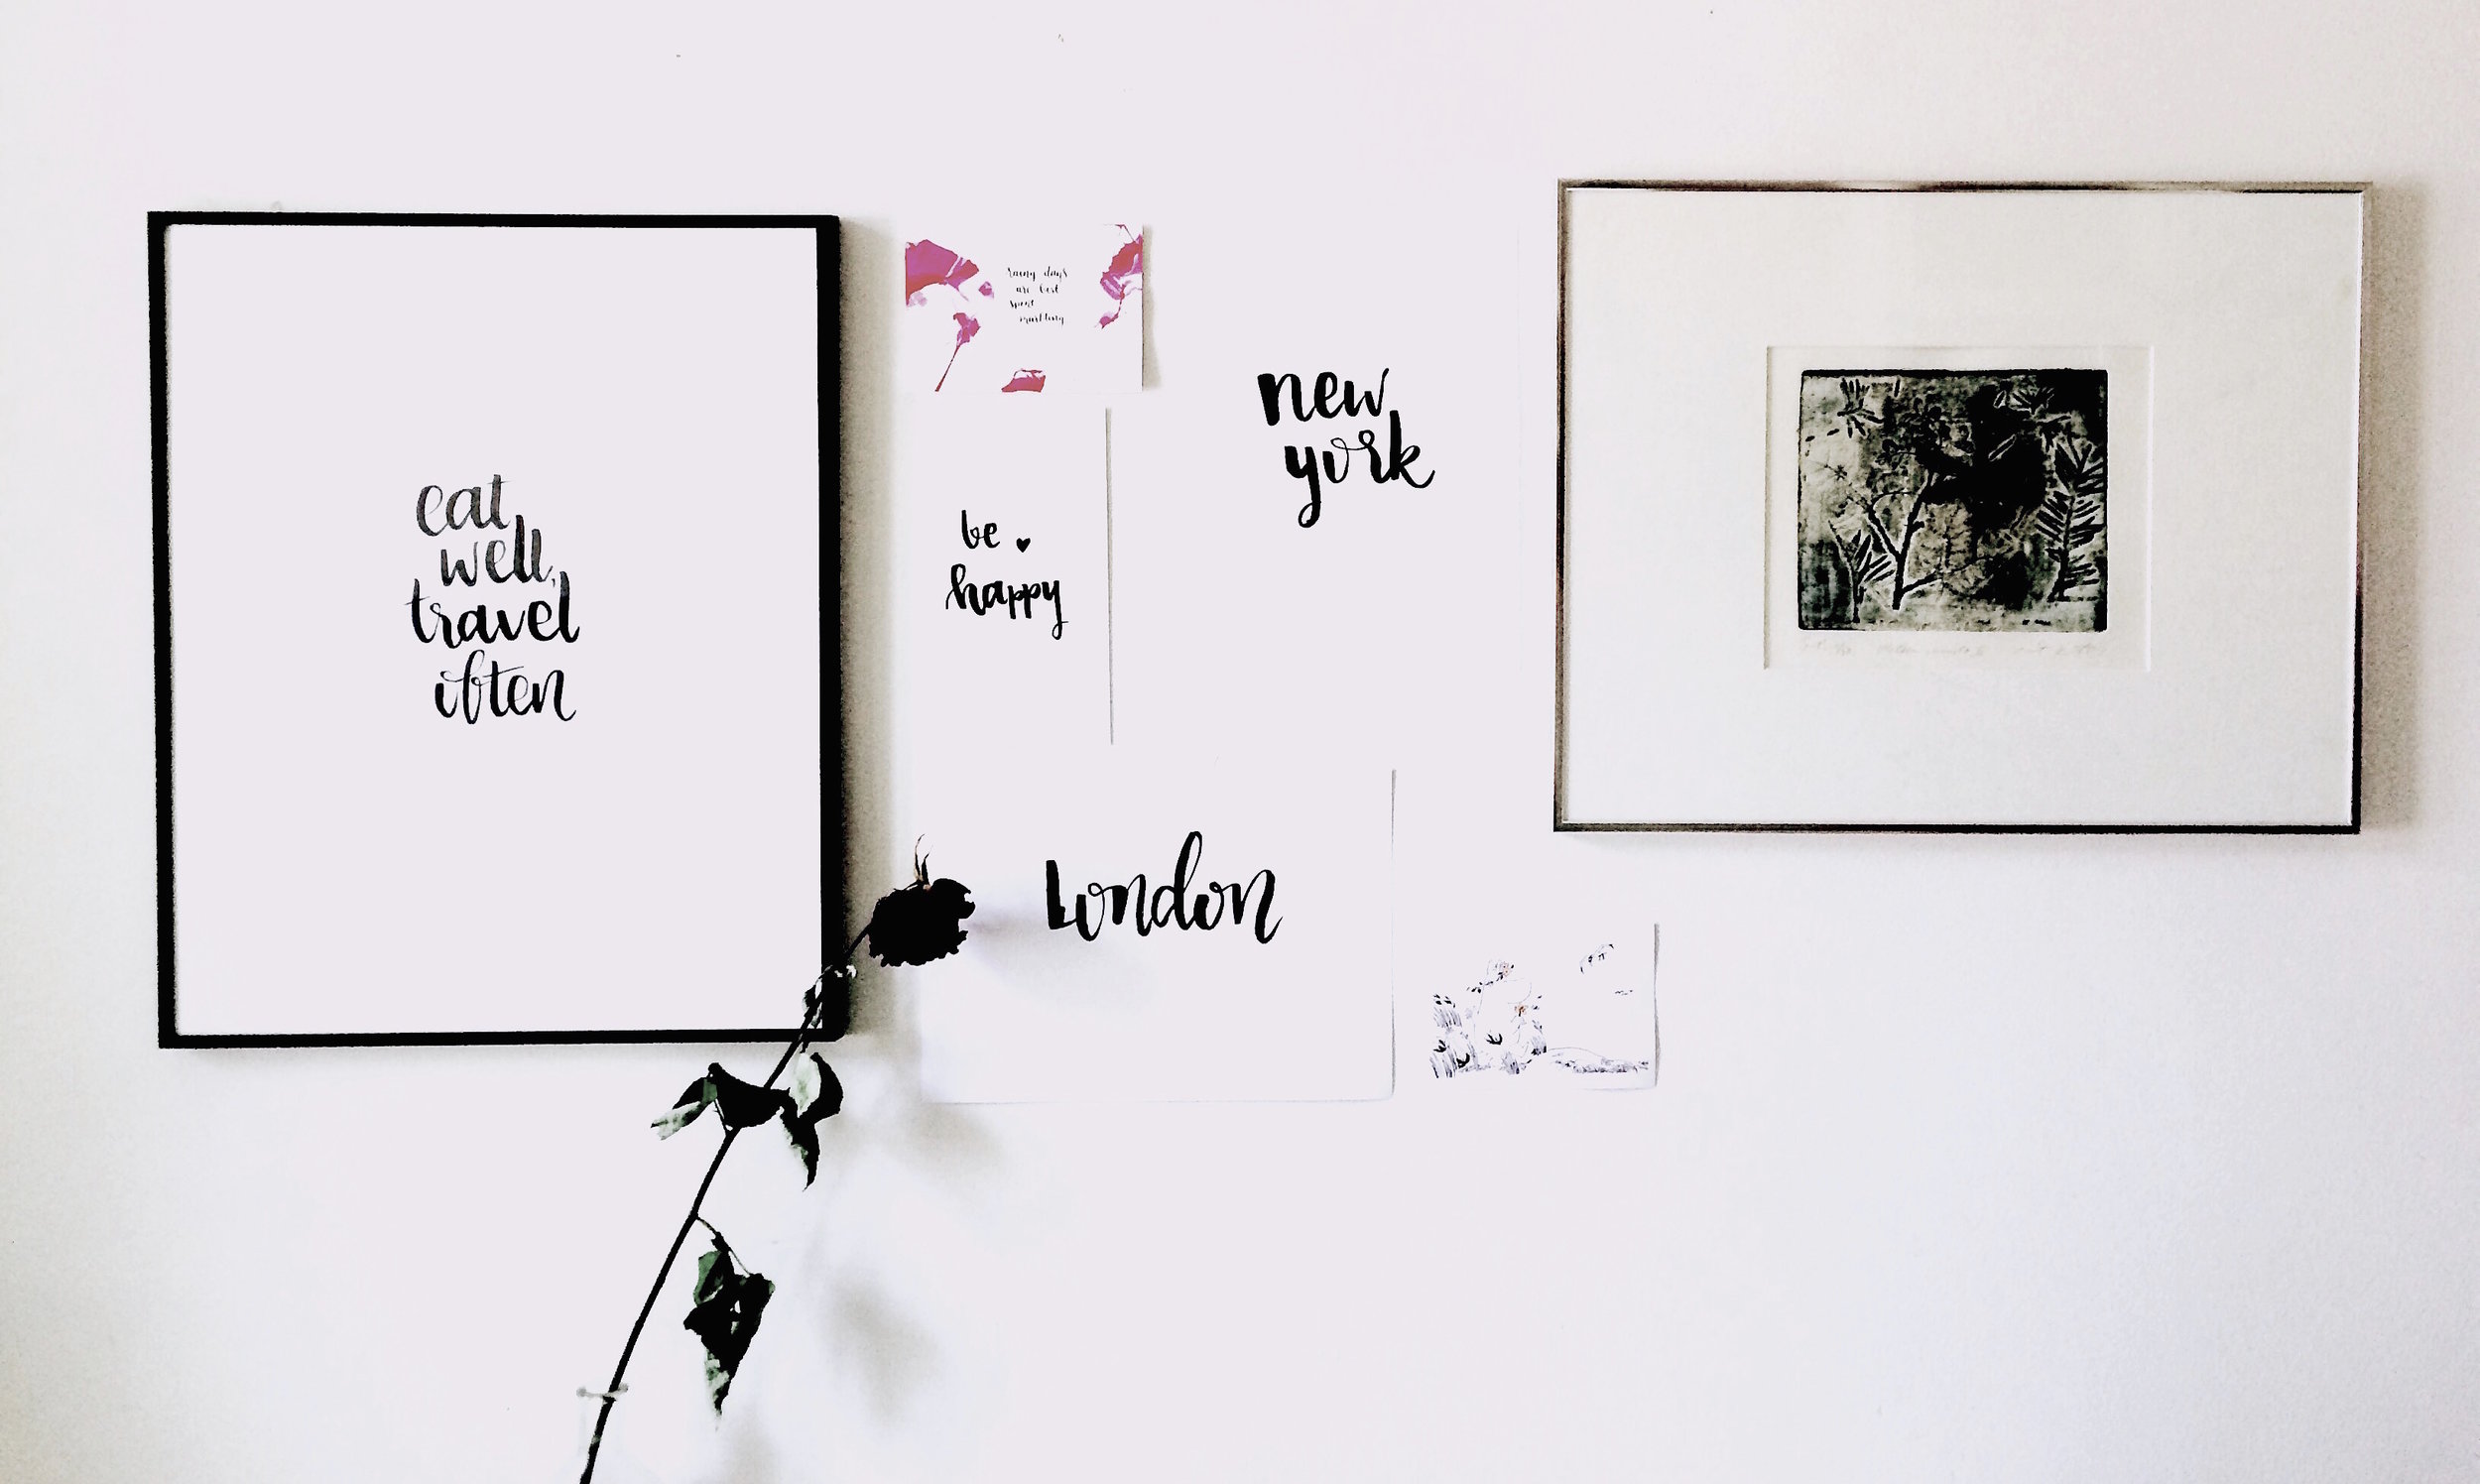 eat
well,
travel
often
rainy days
are best
spent
be
happy
new
york
London